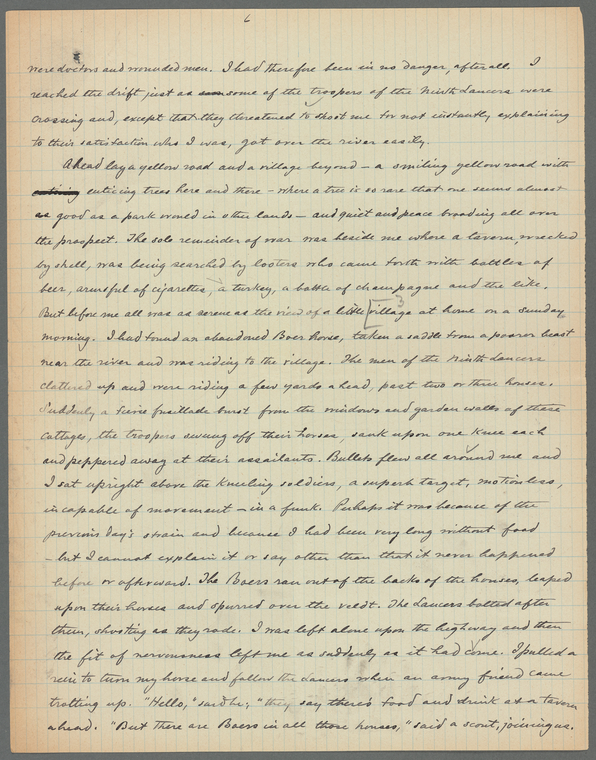 6
were doctors and wounded men. I had therefore been in no danger, after all. I
reached the drift just as some of the troopers of the Ninth Lancers were
crossing and, except that they threatened to shoot me for not instantly explaining
to their satisfaction who I was, got over the river easily.
Ahead lay a yellow road and a village beyond – a smiling yellow road with
enticing trees here and there – where a tree is so rare that one seems almost
as good as a park would in other lands – and quiet and peace brooding all over
the prospect. The sole reminder of war was beside me where a tavern, wrecked
by shell, was being searched by looters who came forth with bottles of
beer, armsful of cigarettes, a turkey, a bottle of champagne and the like.
But before me all was as serene as the view of a little [village at home on a Sunday
3
morning. I had found an abandoned Boer horse, taken a saddle from a poorer beast
near the river and was riding to the village. The men of the Ninth Lancers
clattered up and were riding a few yards ahead, past two or three houses.
Suddenly a fierce fusillade burst from the windows and garden walls of these
cottages, the troopers swung off their horses, sank upon one knee each
and peppered away at their assailants. Bullets flew all around me and
I sat upright above the kneeling soldiers, a superb target, motionless,
incapable of movement – in a funk. Perhaps it was because of the
previous day's strain and because I had been very long without food
– but I cannot explain it or say other than that it never happened
before or afterward. The Boers ran out of the backs of the houses, leaped
upon their horses and spurred over the veldt. The Lancers bolted after
them, shooting as they rode. I was left alone upon the highway and then
the fit of nervousness left me as suddenly as it had come. I pulled a
rein to turn my horse and follow the Lancers when an army friend came
trotting up. "Hello," said he; "they say there's food and drink at a tavern
ahead. "But there are Boers in all those houses," said a scout, joining us.